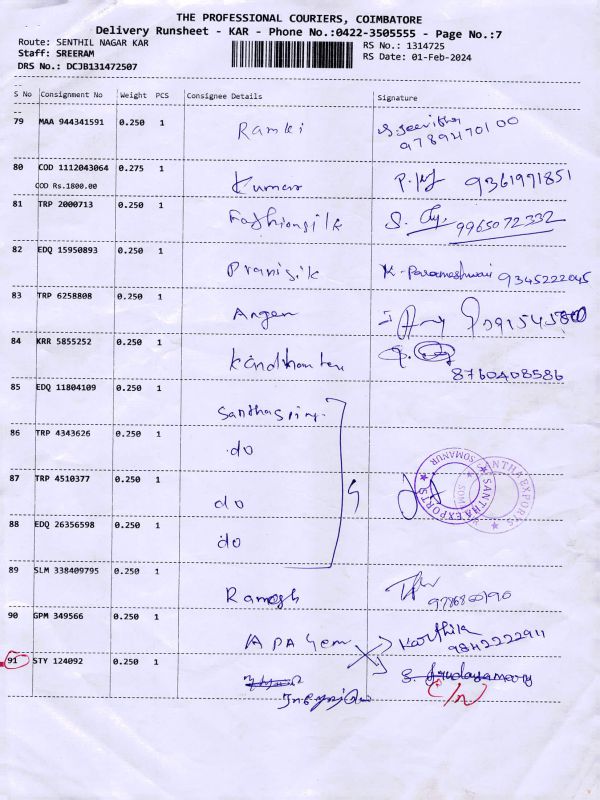 THE PROFESSIONAL COURIERS, COIMBATORE
Delivery Runsheet - KAR - Phone No.:0422-3505555 - Page No.:7
Route: SENTHIL NAGAR KAR
RS No.: 1314725
Staff: SREERAM
RS Date: 01-Feb-2024
DRS No.: DCJB131472507
S No Consignment No Weight PCS Consignee Details Signature
79 MAA 944341591 0.250 1 Ramki
9789470100
80 COD 1112043064 0.275 1 Kumar 9361971851
COD Rs.1800.00
81 TRP 2000713 0.250 1 Fashionsilk S. 9965072332
82 EDQ 15950893 0.250 1 K. Parameshwari 9345222045
83 TRP 6258808 0.250 1
84 KRR 5855252 0.250 1
8760408586
85 EDQ 11804109 0.250 1
86 TRP 4343626 0.250 1 do
87 TRP 4510377 0.250 1 do
88 EDQ 26356598 0.250 1 do
SANTHA EXPORTS SOMANUR
89 SLM 338409795 0.250 1 Ramesh
90 GPM 349566 0.250 1 Karthik
9842222911
91 STY 124092 0.250 1